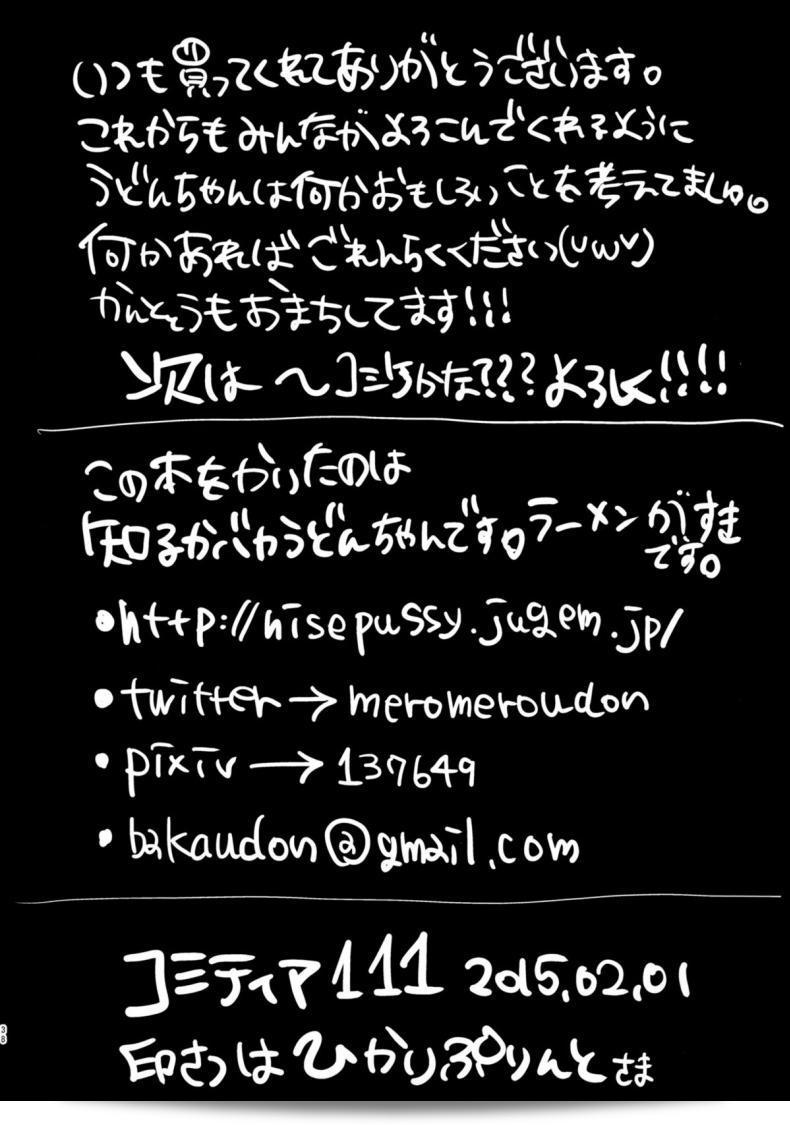 いつも買ってくれてありがとうございます。
これからもみんながよろこんでくれるように
うどんちゃんは何かおもしろいことを考えてましゅ。
何かあればごれんらくください(∪ω∪)
かんそうもおまちしてます!!!
次は〜コミケかな???よろしく!!!!
この本をかいたのは
知るかバカうどんちゃんです。ラーメンがすき
です。
•http://nisepussy.jugem.jp/
•twitter→meromeroudon
•pixiv→137649
•bakaudon@gmail.com
コミティア111 2015.02.01
印さつはひかりぷりんとさま
38